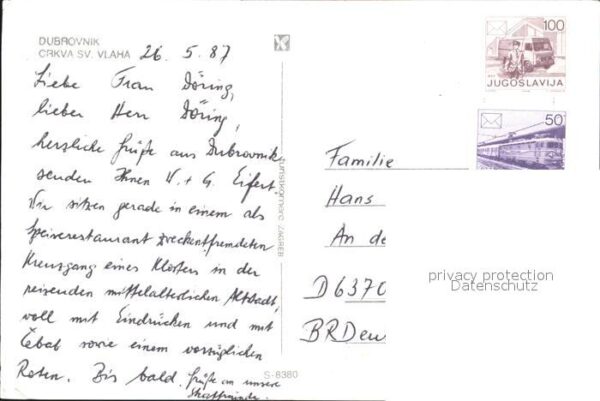 DUBROVNIK
CRKVA SV. VLAHA
26. 5. 87
Liebe Frau Döring,
lieber Herr Döring,
herzliche Grüße aus Dubrovnik
senden Ihnen W. + G. Eifert.
Wir sitzen gerade in einem als
Speiserestaurant zweckentfremdeten
Kreuzgang eines Klosters in der
reizenden mittelalterlichen Altstadt,
voll mit Eindrücken und mit
Čebab sowie einem vorzüglichen
Roten. Bis bald. Grüße an unsere
Skatfreunde.
S-8380
ZAGREB
100
JUGOSLAVIJA
50
Familie
Hans
An de
D6370
BRDeu
privacy protection
Datenschutz